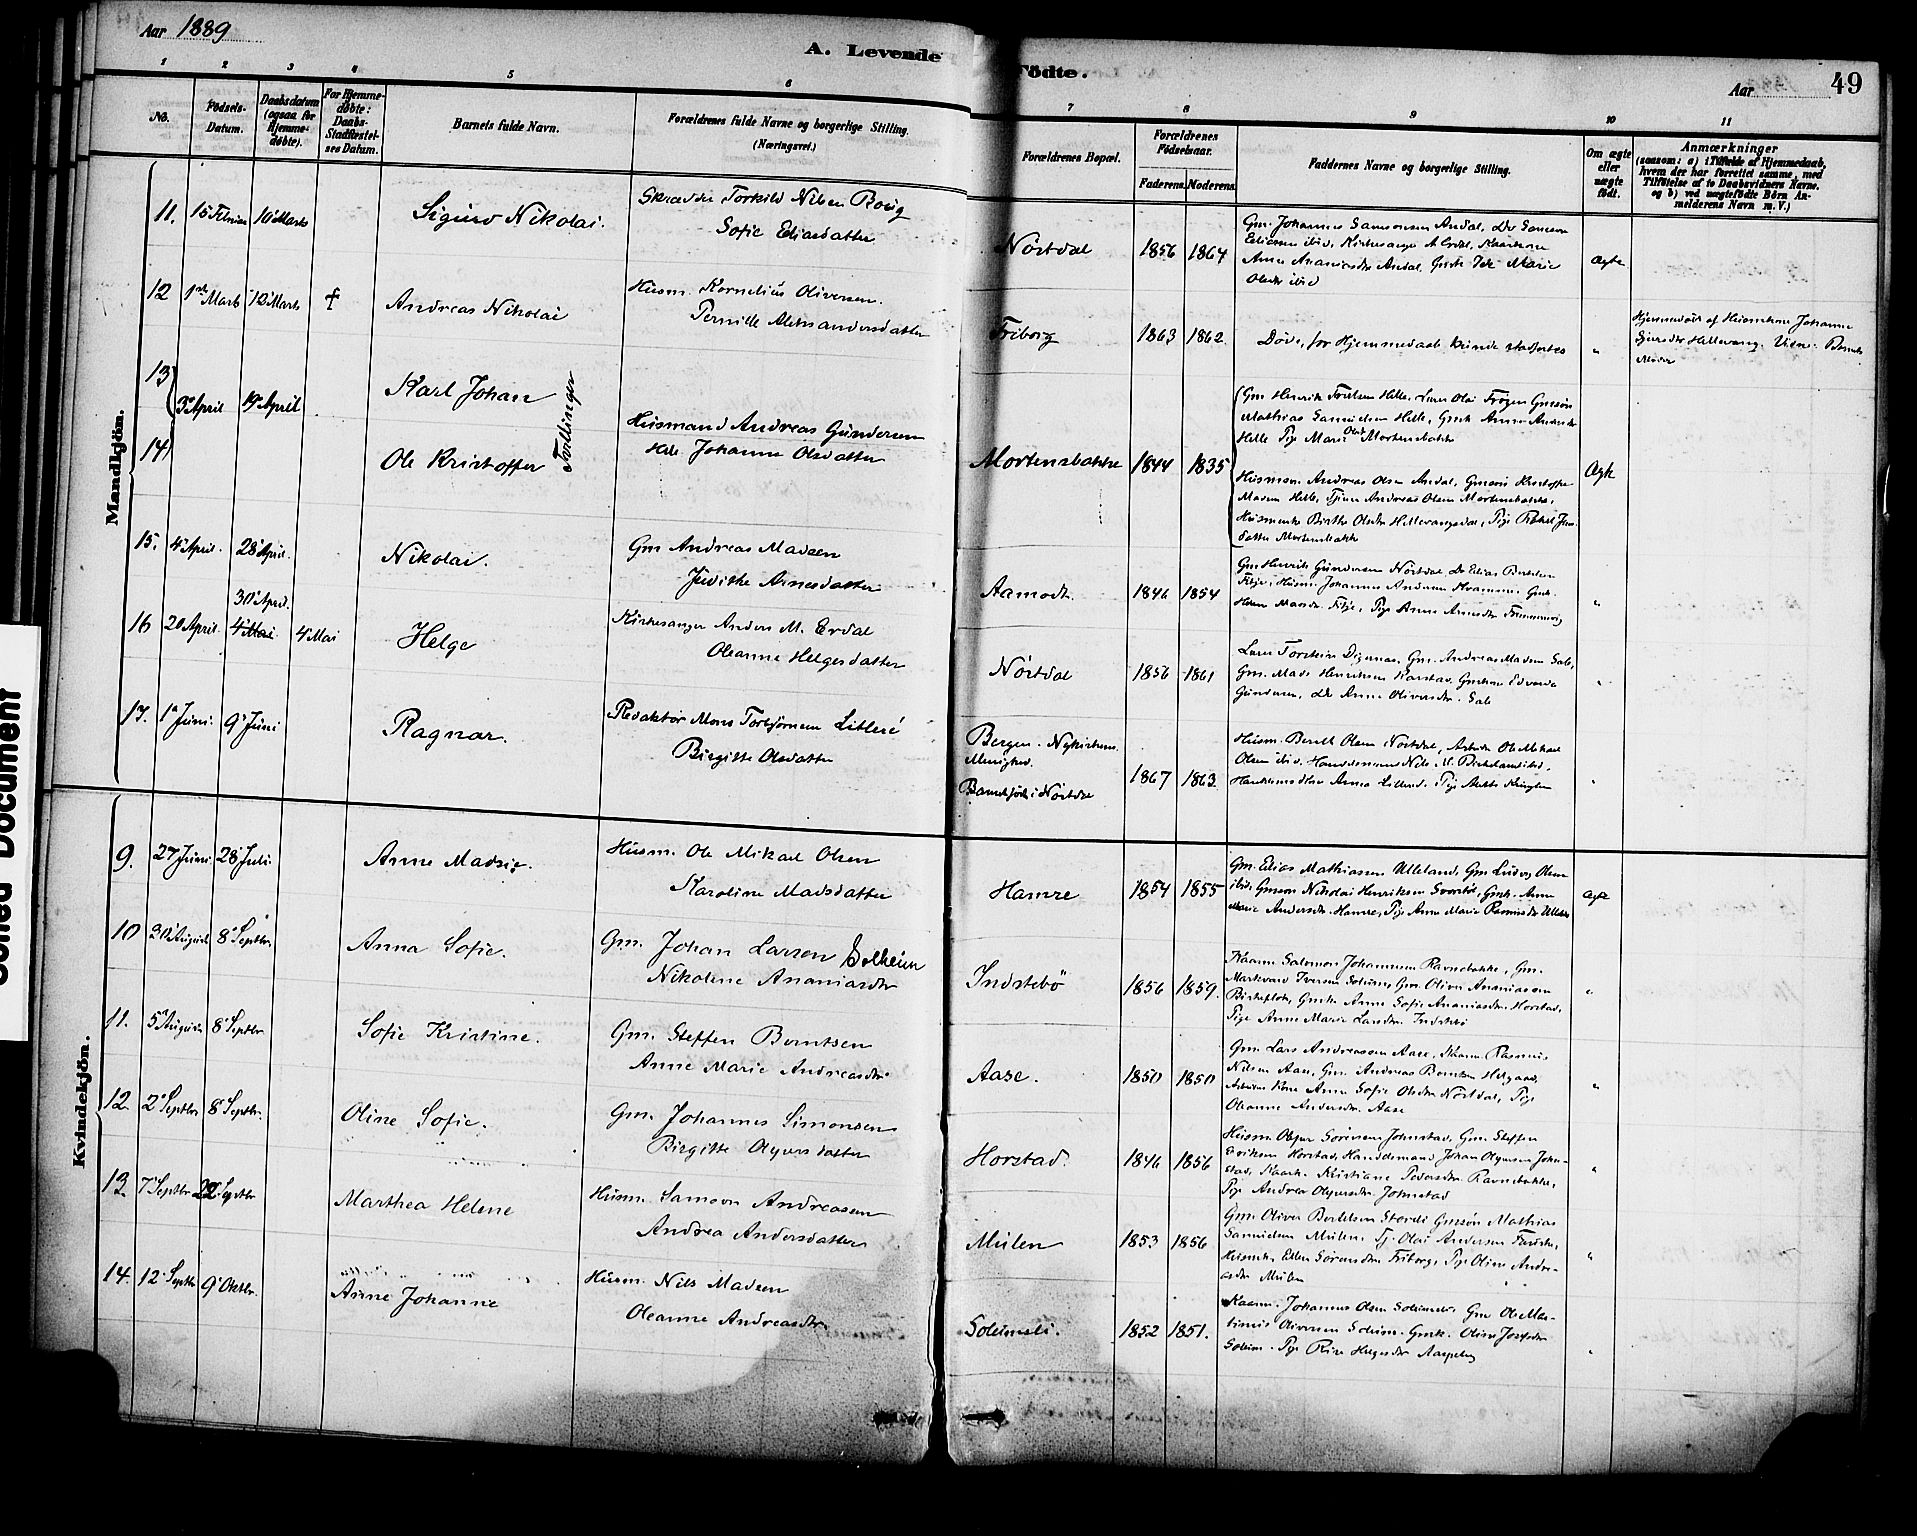 Aar 1889
A. Levende Fødte.
Aar
49
1 2 3 4 5 6 7 8 9 10 11
No.
Fødsels-Datum.
Daabsdatum (ogsaa for Hjemmedøbte).
For Hjemmedøbte: Daabs-Stadfæstelses Datum.
Barnets fulde Navn.
Forældrenes fulde Navne og borgerlige Stilling. (Næringsvei.)
Forældrenes Bopæl.
Forældrenes Fødselsaar.
Faderens. Moderens.
Faddernes Navne og borgerlige Stilling.
Om ægte eller uægte født.
Anmærkninger
(saasom: a) i Tilfælde af Hjemmedaab, hvem der har forrettet samme, med Tilføielse af to Daabsvidners Navne. b) ved uægtefødte Børn Anmelderens Navn m. V.)
Mandkjön.
11. 15 Februar 10 Marts Sigurd Nikolai.
Skrædder Torkild Nilsen
Sofie Eliasdatter
Nørtdal 1856 1864
Gm. Johannes Samsonsen Andal,
Eliassen ibid, Kirkesanger A. Erdal,
Anne Ananiasdtr Andal, Marie
Olsdtr ibid
Ægte
12 1 Marts 12 Marts † Andreas Nikolai
Husm. Kornelius Oliversen.
Pernille Aleksandersdatter
Friborg 1863 1862.
Døde, før Hjemmedaab kunde stadfæstes
"
Hjemmedøbt af Johanne
13 3 April 19 April Karl Johan
14 Ole Kristoffer
Tvillinger
Husmand Andreas Gundersen
Johanne Olsdatter
Mortensbakke 1844 1835
Gm Henrik Helle, Olai
Mathias Samuelsen Helle, Gmk Anne
Helle Pige Marie Olsdtr Mortensbakke
Husman Andreas Olsen Andal, Gmsøn Kristoffer
Madsen Helle, Tjener Andreas Olsen Mortensbakke,
Birthe Olsdtr Hellevangsdal, Pige Rakel
datter Mortensbakke
Ægte
15. 4 April. 28 April. Nikolai.
Gm Andreas Madsen
Judithe Arnesdatter
Aamodt. 1846 1854
Gm Henrik Gundersen Nørtdal, Elias
Husm. Johannes Andersen Kvammen, Gmk.
Pige Anne
"
16 20 April 30 April. 4 Mai 4 Mai Helge
Kirkesanger Anders M. Erdal
Oleanne Helgesdatter
Nørtdal 1856 1861
Lærer Torstein Digernes, Gm. Andreas Madsen Sale,
Gm. Mads Henriksen
Gundersen, Anne Oliversdtr. Sale
"
17. 1 Juni. 9 Juni Ragnar.
Redaktør Mons Torbjørnsen Litleré
Birgitte Olsdatter
Bergen. Nykirkens
Menighed.
Barnet født i Nørtdal
1867 1863.
Husm. Berent Olsen Nørtdal, Ole Mikael
Olsen ibid. Handelsmand Nils M. Birkeland ibid,
Anna
"
Kvindekjön.
9. 27 Juni. 28 Juli. Anne Madsie.
Husm. Ole Mikael Olsen
Karoline Madsdatter
Hamre 1854 1855
Gm. Elias Mathiassen Ulleland, Gm Ludvig Olsen
ibid, Gmsøn Nikolai Henriksen Svortdt, Gmk. Anne
Marie Andersdtr. Hamre, Pige Anne Marie Rasmusdtr
Ægte
10 30 August 8 Septbr. Anna Sofie.
Gm. Johan Larsen Solheim
Nikoline Ananiasdtr
Indrebö 1856 1859.
Kaarm Salomon Johannesen Ravnebakke, Gm.
Markvard Iversen Solheim, Gm. Oliver Ananiassen
Birkeflot, Gmk Anne Sofie Ananiasdtr. Horstad,
Pige Anne Marie Larsdtr. Indrebö
"
11. 5 August 8 Septbr. Sofie Kristine.
Gm. Steffen Berntsen
Anne Marie Andreasdtr
Aase. 1850 1850
Gm. Lars Andreassen Aase, Kaarm. Rasmus
Nilsen Aase, Gm. Andreas Berntsen
Kone Anne Sofie Olsdtr Nørtdal, Pige
Oleanne Andersdtr. Aase
"
12. 2 Septbr 8 Septbr. Oline Sofie.
Gm. Johannes Simonsen
Birgitte Olgersdatter
Horstad. 1846 1856
Husm. Olger Sørensen Johnstad, Gm. Steffen
Eriksen Horstad, Handelsmand Johan Olgersen John-
stad, Kaark. Kristiane Pedersdtr. Ravnebakke,
Pige Andrea Olgersdtr. Johnstad
"
13. 7 Septbr. 22 Septbr Marthea Helene
Husm. Samson Andreasen
Andrea Andersdatter
Mulen 1853 1856
Gm. Oliver Bertelsen Storeli Gmsøn Mathias
Samuelsen Mulen, Tj. Olai Andersen
Ellen Sørensdtr. Friborg, Pige Oline Andre-
asdtr Mulen
"
14. 12 Septbr 9 Oktbr. Anne Johanne
Husm. Nils Madsen
Oleanne Andreasdtr.
Solemsli. 1852 1851.
Kaarm. Johannes Olsen Solemsli. Gm Ole Mar-
tinus Oliversen Solheim. Gmk. Oline Josefsdtr
Solheim. Pige Helgesdtr
"
Document